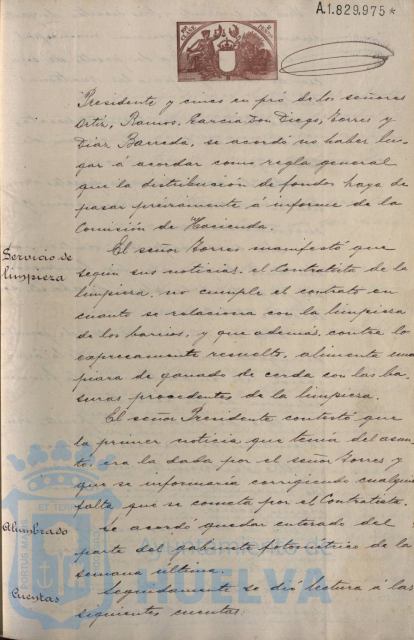 A.1.829.975*
Presidente y cinco en pró de los señores
Ortiz, Ramos, Garcia Don Diego, Torres y
Diaz Barreda, se acordó no haber lu-
gar á acordar como regla general
que la distribución de fondos haya de
pasar préviamente á informe de la
Comisión de Hacienda.
Servicio de
limpieza
El señor Torres manifestó que
según sus noticias, el Contratista de la
limpieza, no cumple el contrato en
cuanto se relaciona con la limpieza
de los barrios, y que además, contra lo
expresamente resuelto, alimenta una
piara de ganado de cerda con las ba-
suras procedentes de la limpieza.
El señor Presidente contestó que
la primer noticia que tenia del asun-
to, era la dada por el señor Torres y
que se informaria corrigiendo cualquier
falta que se cometa por el Contratista.
Alumbrado
Se acordó quedar enterado del
parte del gabinete fotométrico de la
semana última.
Cuentas
Seguidamente se dió lectura á las
siguientes cuentas:
Ayuntamiento de
HUELVA